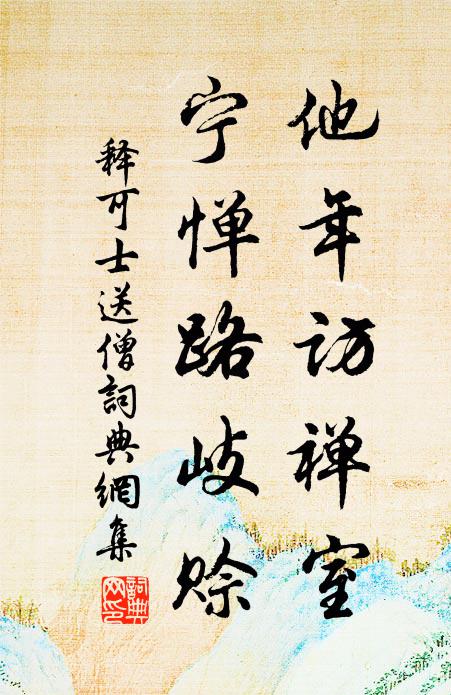 他年访禅室
宁惮路岐赊
释可士送僧詞典網集
詞典网印